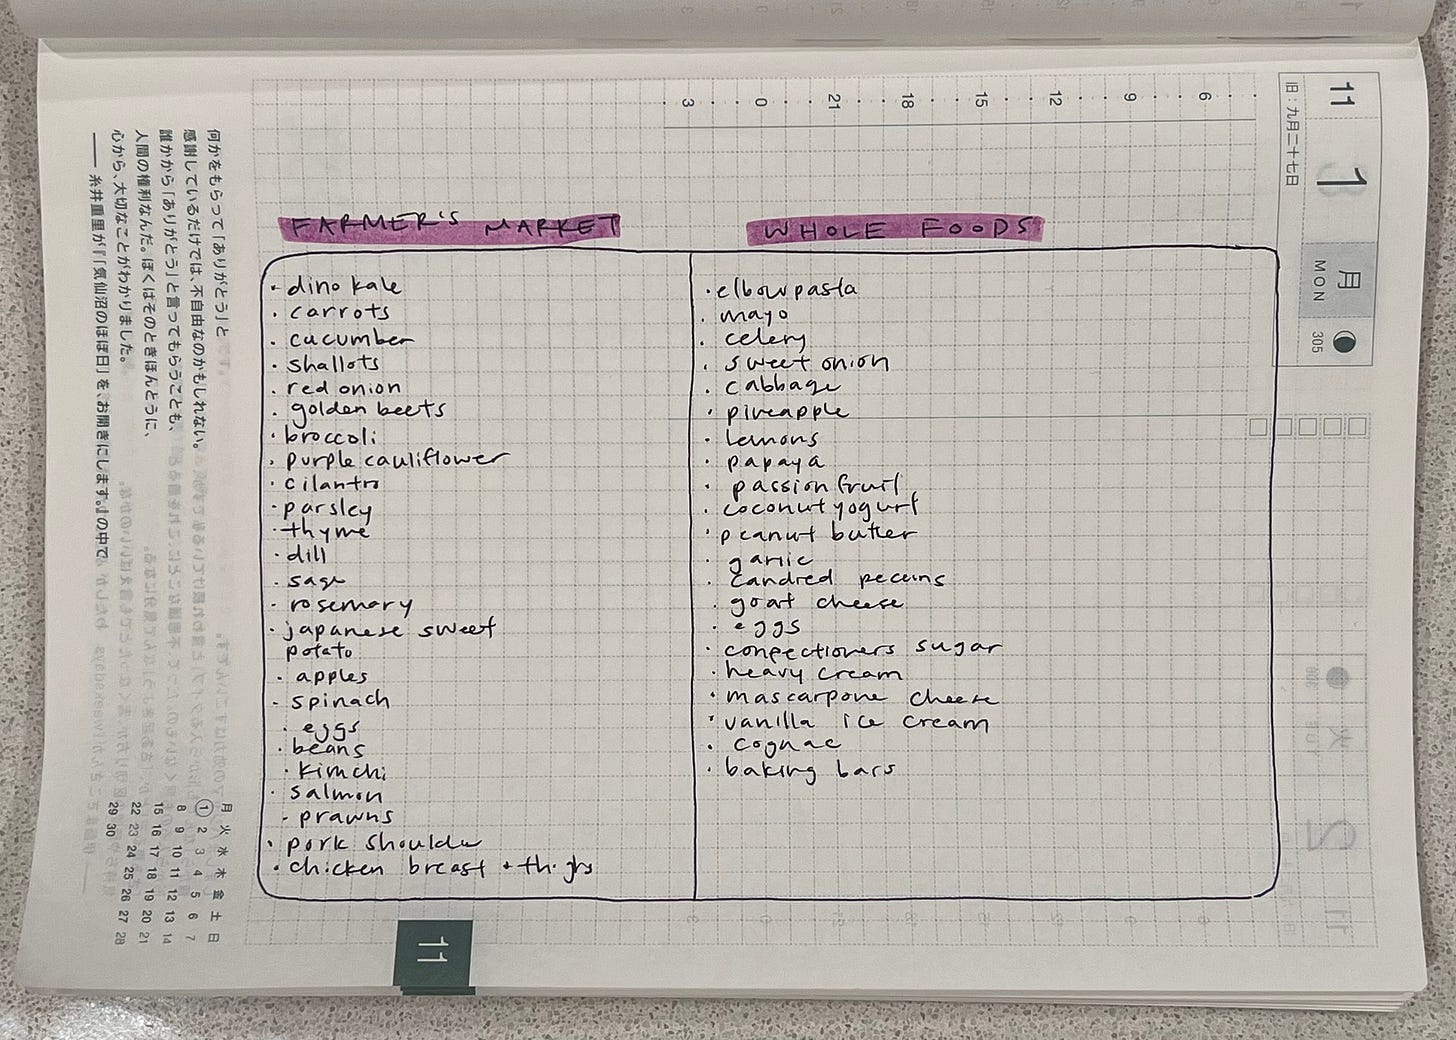 FARMER'S MARKET
· dino kale
· carrots
· cucumber
· shallots
· red onion
· golden beets
· broccoli
· purple cauliflower
· cilantro
· parsley
· thyme
· dill
· sage
· rosemary
· japanese sweet
potato
· apples
· spinach
· eggs
· beans
· kimchi
· salmon
· prawns
· pork shoulder
· chicken breast + thighs
WHOLE FOODS
· elbow pasta
· mayo
· celery
· sweet onion
· cabbage
· pineapple
· lemons
· papaya
· passion fruit
· coconut yogurt
· peanut butter
· garlic
· candied pecans
· goat cheese
· eggs
· confectioners sugar
· heavy cream
· mascarpone cheese
· vanilla ice cream
· cognac
· baking bars
11
1
旧:九月二十七日
月
MON
305
6
9
12
15
18
21
0
3
何かをもらって「ありがとう」と
感謝しているだけでは、不自由なのかもしれない。
誰かから「ありがとう」と言ってもらうことも、
人間の権利なんだ。ぼくはそのときほんとうに、
心から、大切なことがわかりました。
——糸井重里が『「気仙沼のほぼ日」を、お開きにします。』の中で
月 火 水 木 金 土 日
1 2 3 4 5 6 7
8 9 10 11 12 13 14
15 16 17 18 19 20 21
22 23 24 25 26 27 28
29 30
11